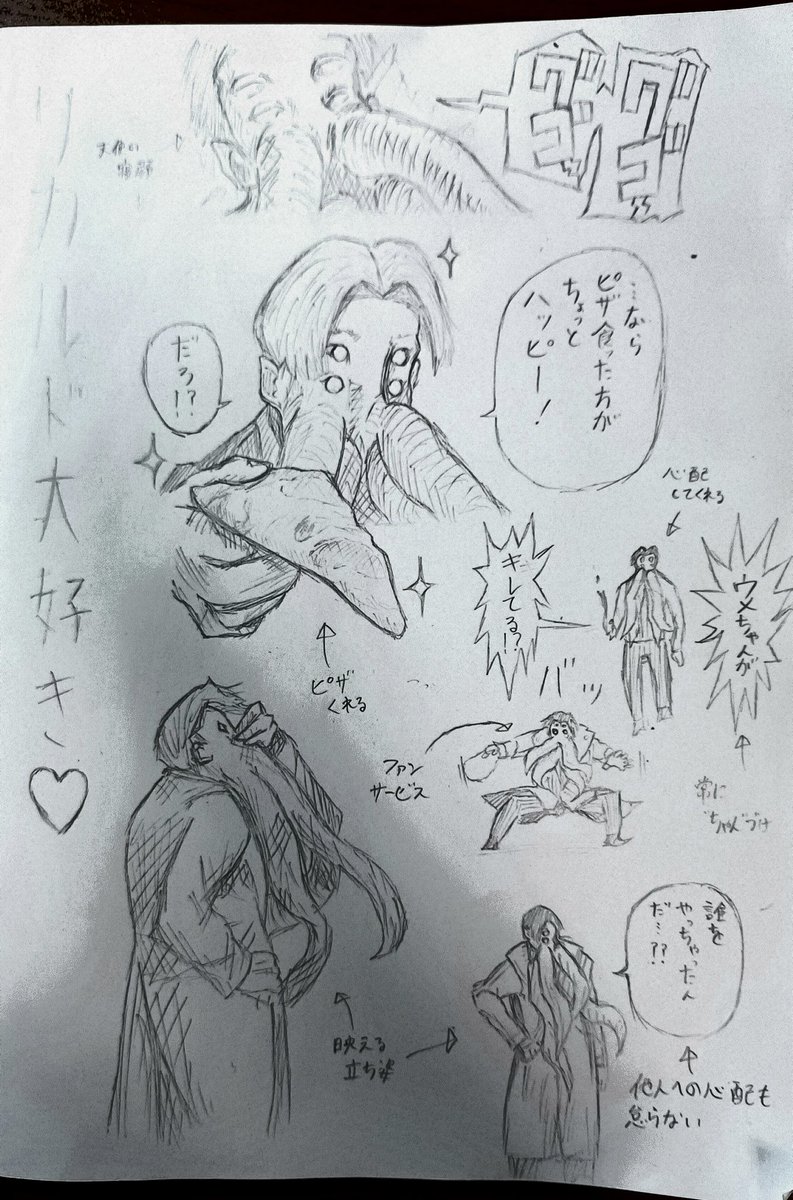 リカルド大好き♡
天使の
寝顔
グゴゴ
グゴゴ
…なら
ピザ食った方が
ちょっと
ハッピー！
だろ!?
ピザ
くれる
心配
してくれる
ウメちゃんが
キレてる!?
常に
"ちゃん"づけ
バッ
ファン
サービス
映える
立ち姿
誰を
やっちゃったん
だ…??
他人への心配も
怠らない